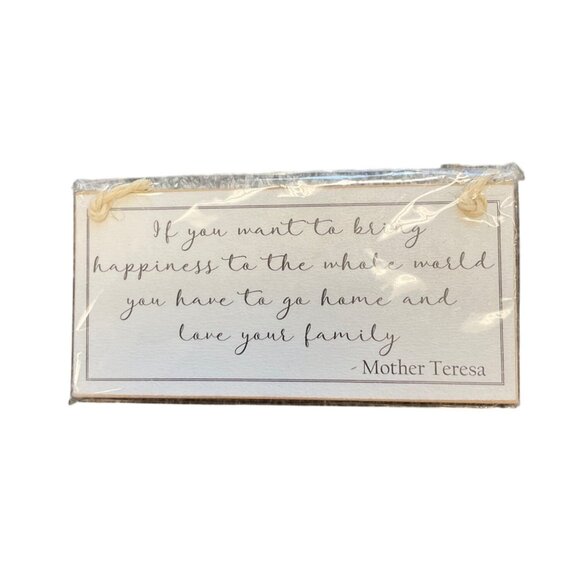 If you want to bring
happiness to the whole world
you have to go home and
love your family
- Mother Teresa